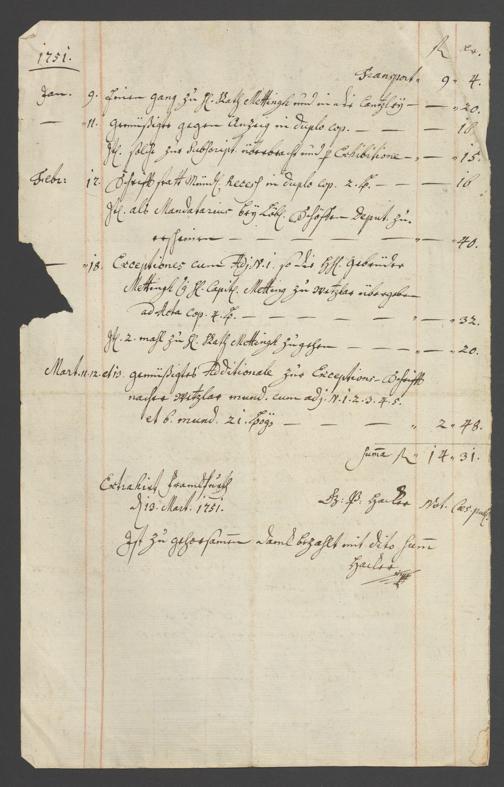 1751. R xr.
Transport " 9 " 4.
Jan. 9. einen gang zu H. Rath Mettingh und in die Cantzley — — " 20.
— " 11. gemüßigte gegen Anzeig in duplo cop. — — — 16
It. solche zur Subscript. überbracht und p Exhibitione — " — " 15.
Febr: 17. Schrifft statt Mündl. Recess in duplo cop. 2. — — 16
It. als Mandatarius bey Löbl. Schöffen Deput. zu
erscheinen — — — — — " — " 40.
— " 18. Exceptiones cum Adj. N. 1. so die HH. Gebrüder
Mettingh H. Metting zu Wetzlar übergeben
ad Acta cop. — — — — " — " 32.
It. 2. mahl zu H. Rath Mettingh zugehen — — " — " 20.
Mart. 11. 12. et 13. gemüßigtes Additionale zur Exceptions-Schrifft
nacher Wetzlar mund. cum adj. N. 1. 2. 3. 4. 5.
et 6. mund. 21. — — — " 2 " 48.
Summa R 14 " 31.
Extrahirt Franckfurth
d. 13. Mart. 1751. Hacker Not. Caes. publ.
Ist zu gehorsamem Danck bezahlt mit dito Summ
Hacker